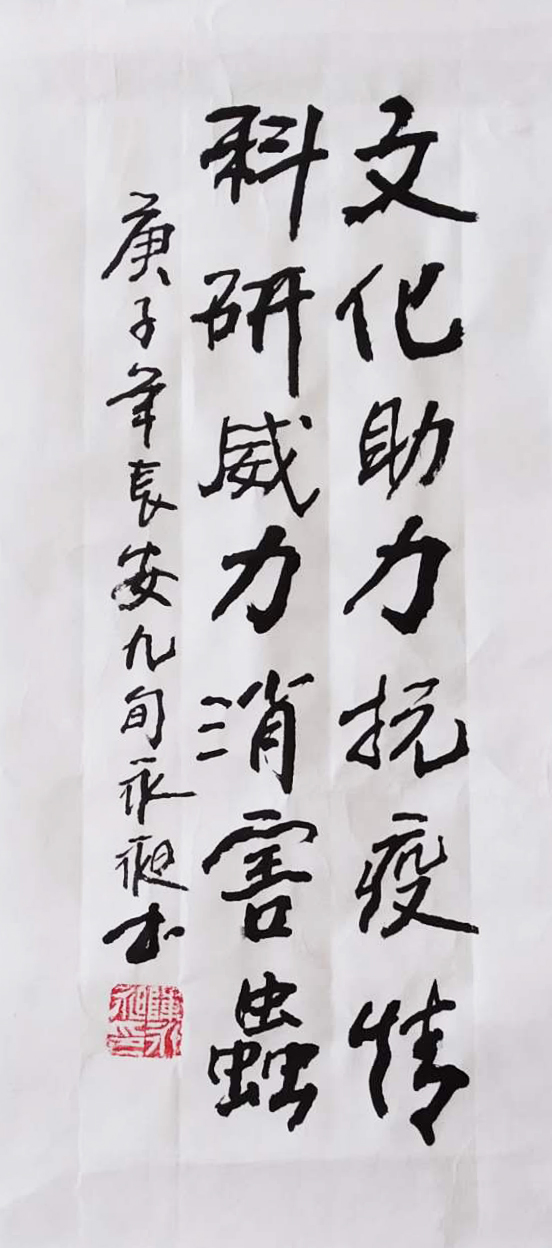 文化助力抗疫情
科研威力消害蟲
庚子年長安九旬永 书